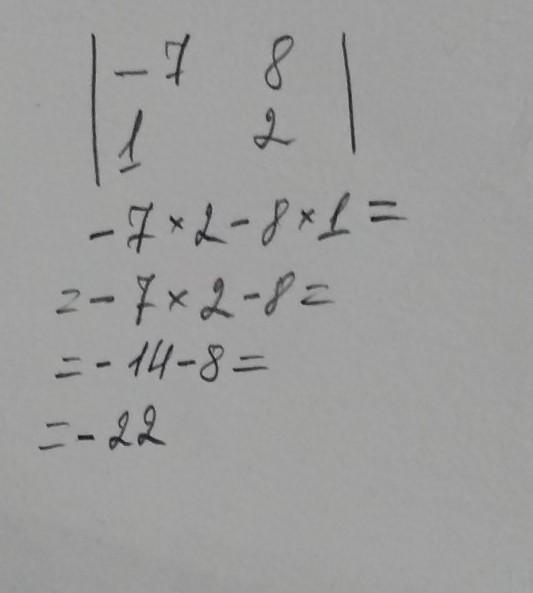 | -7 8 |
| 1 2 |
-7 × 2 - 8 × 1 =
= - 7 × 2 - 8 =
= - 14 - 8 =
= - 22